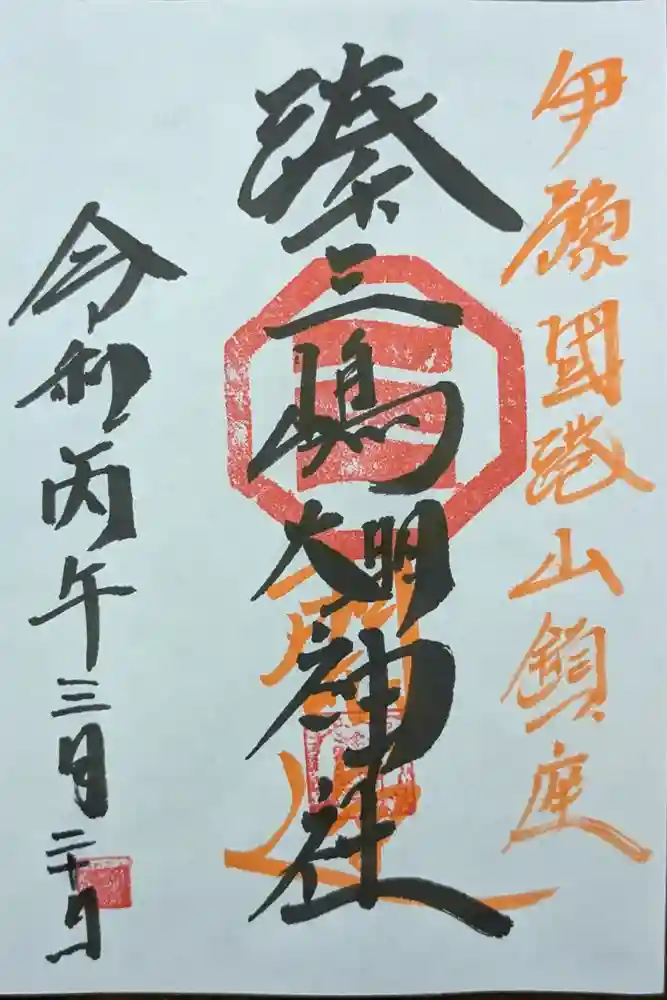 伊豫國港山鎮座
湊三嶋大明神社
令和丙午三月二十日